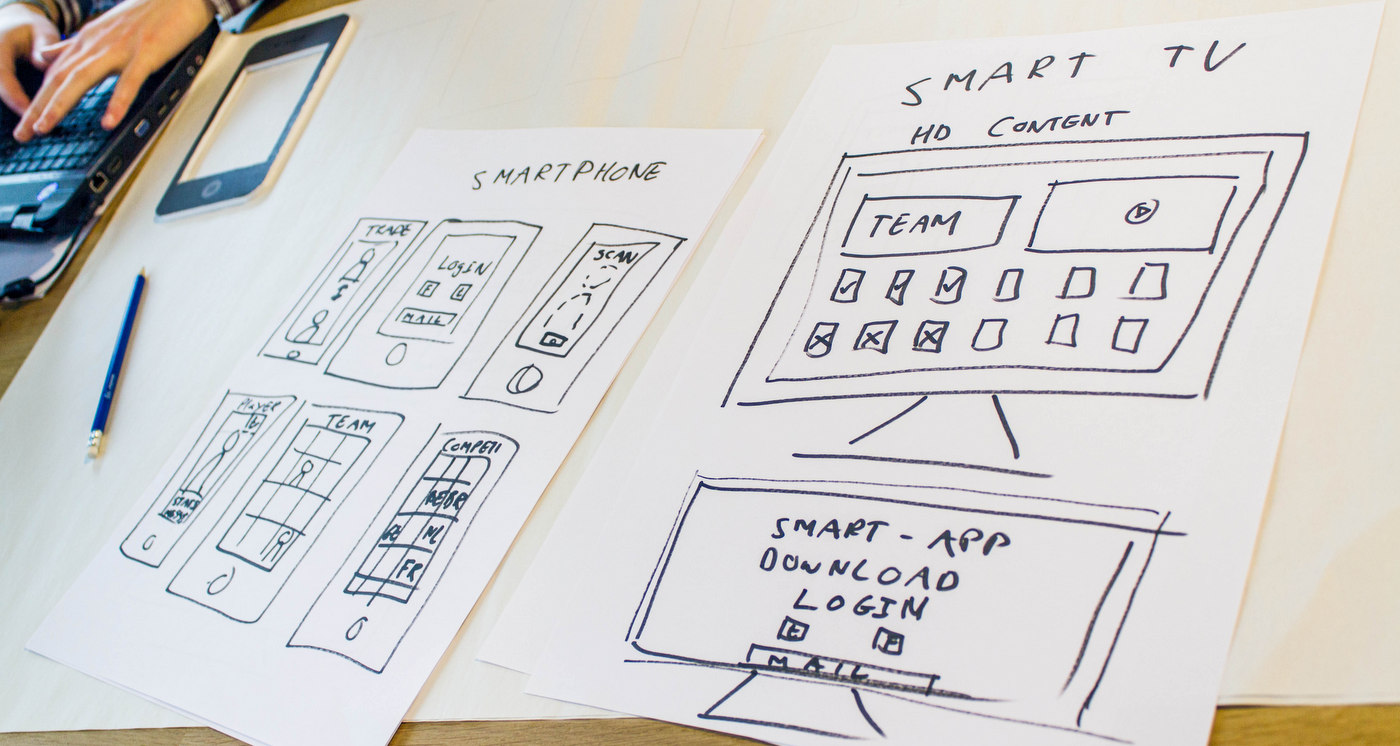 SMARTPHONE
TRADE
LOGIN
F E
MAIL
SCAN
PLAYER
STATS
TEAM
COMPETI
BE BR
GE NL
FR
SMART TV
HD CONTENT
TEAM
SMART - APP
DOWNLOAD
LOGIN
E F
MAIL